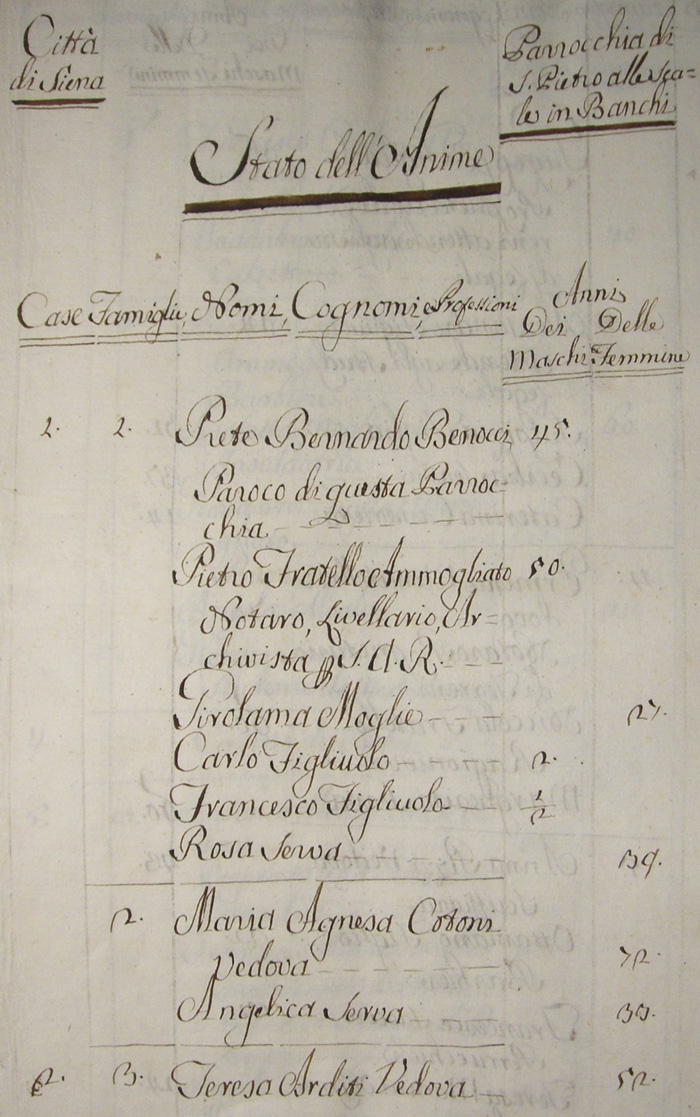 Città
di Siena
Parrocchia di
S. Pietro alle Sca=
le in Banchi
Stato dell'Anime
Case Famiglie, Nomi, Cognomi, e Professioni
Anni
Dei Delle
Maschi Femmine
1. 1. Prete Bernardo Benocci 45.
Paroco di questa Parroc=
chia
Pietro Fratello Ammogliato 50.
Notaro, Livellario, Ar=
chivista S. A. R.
Girolama Moglie 27.
Carlo Figliuolo 2.
Francesco Figliuolo 1/2
Rosa Serva 39.
2. Maria Agnesa Cotoni
Vedova 72.
Angelica Serva
2. 3. Teresa Arditi Vedova 52.